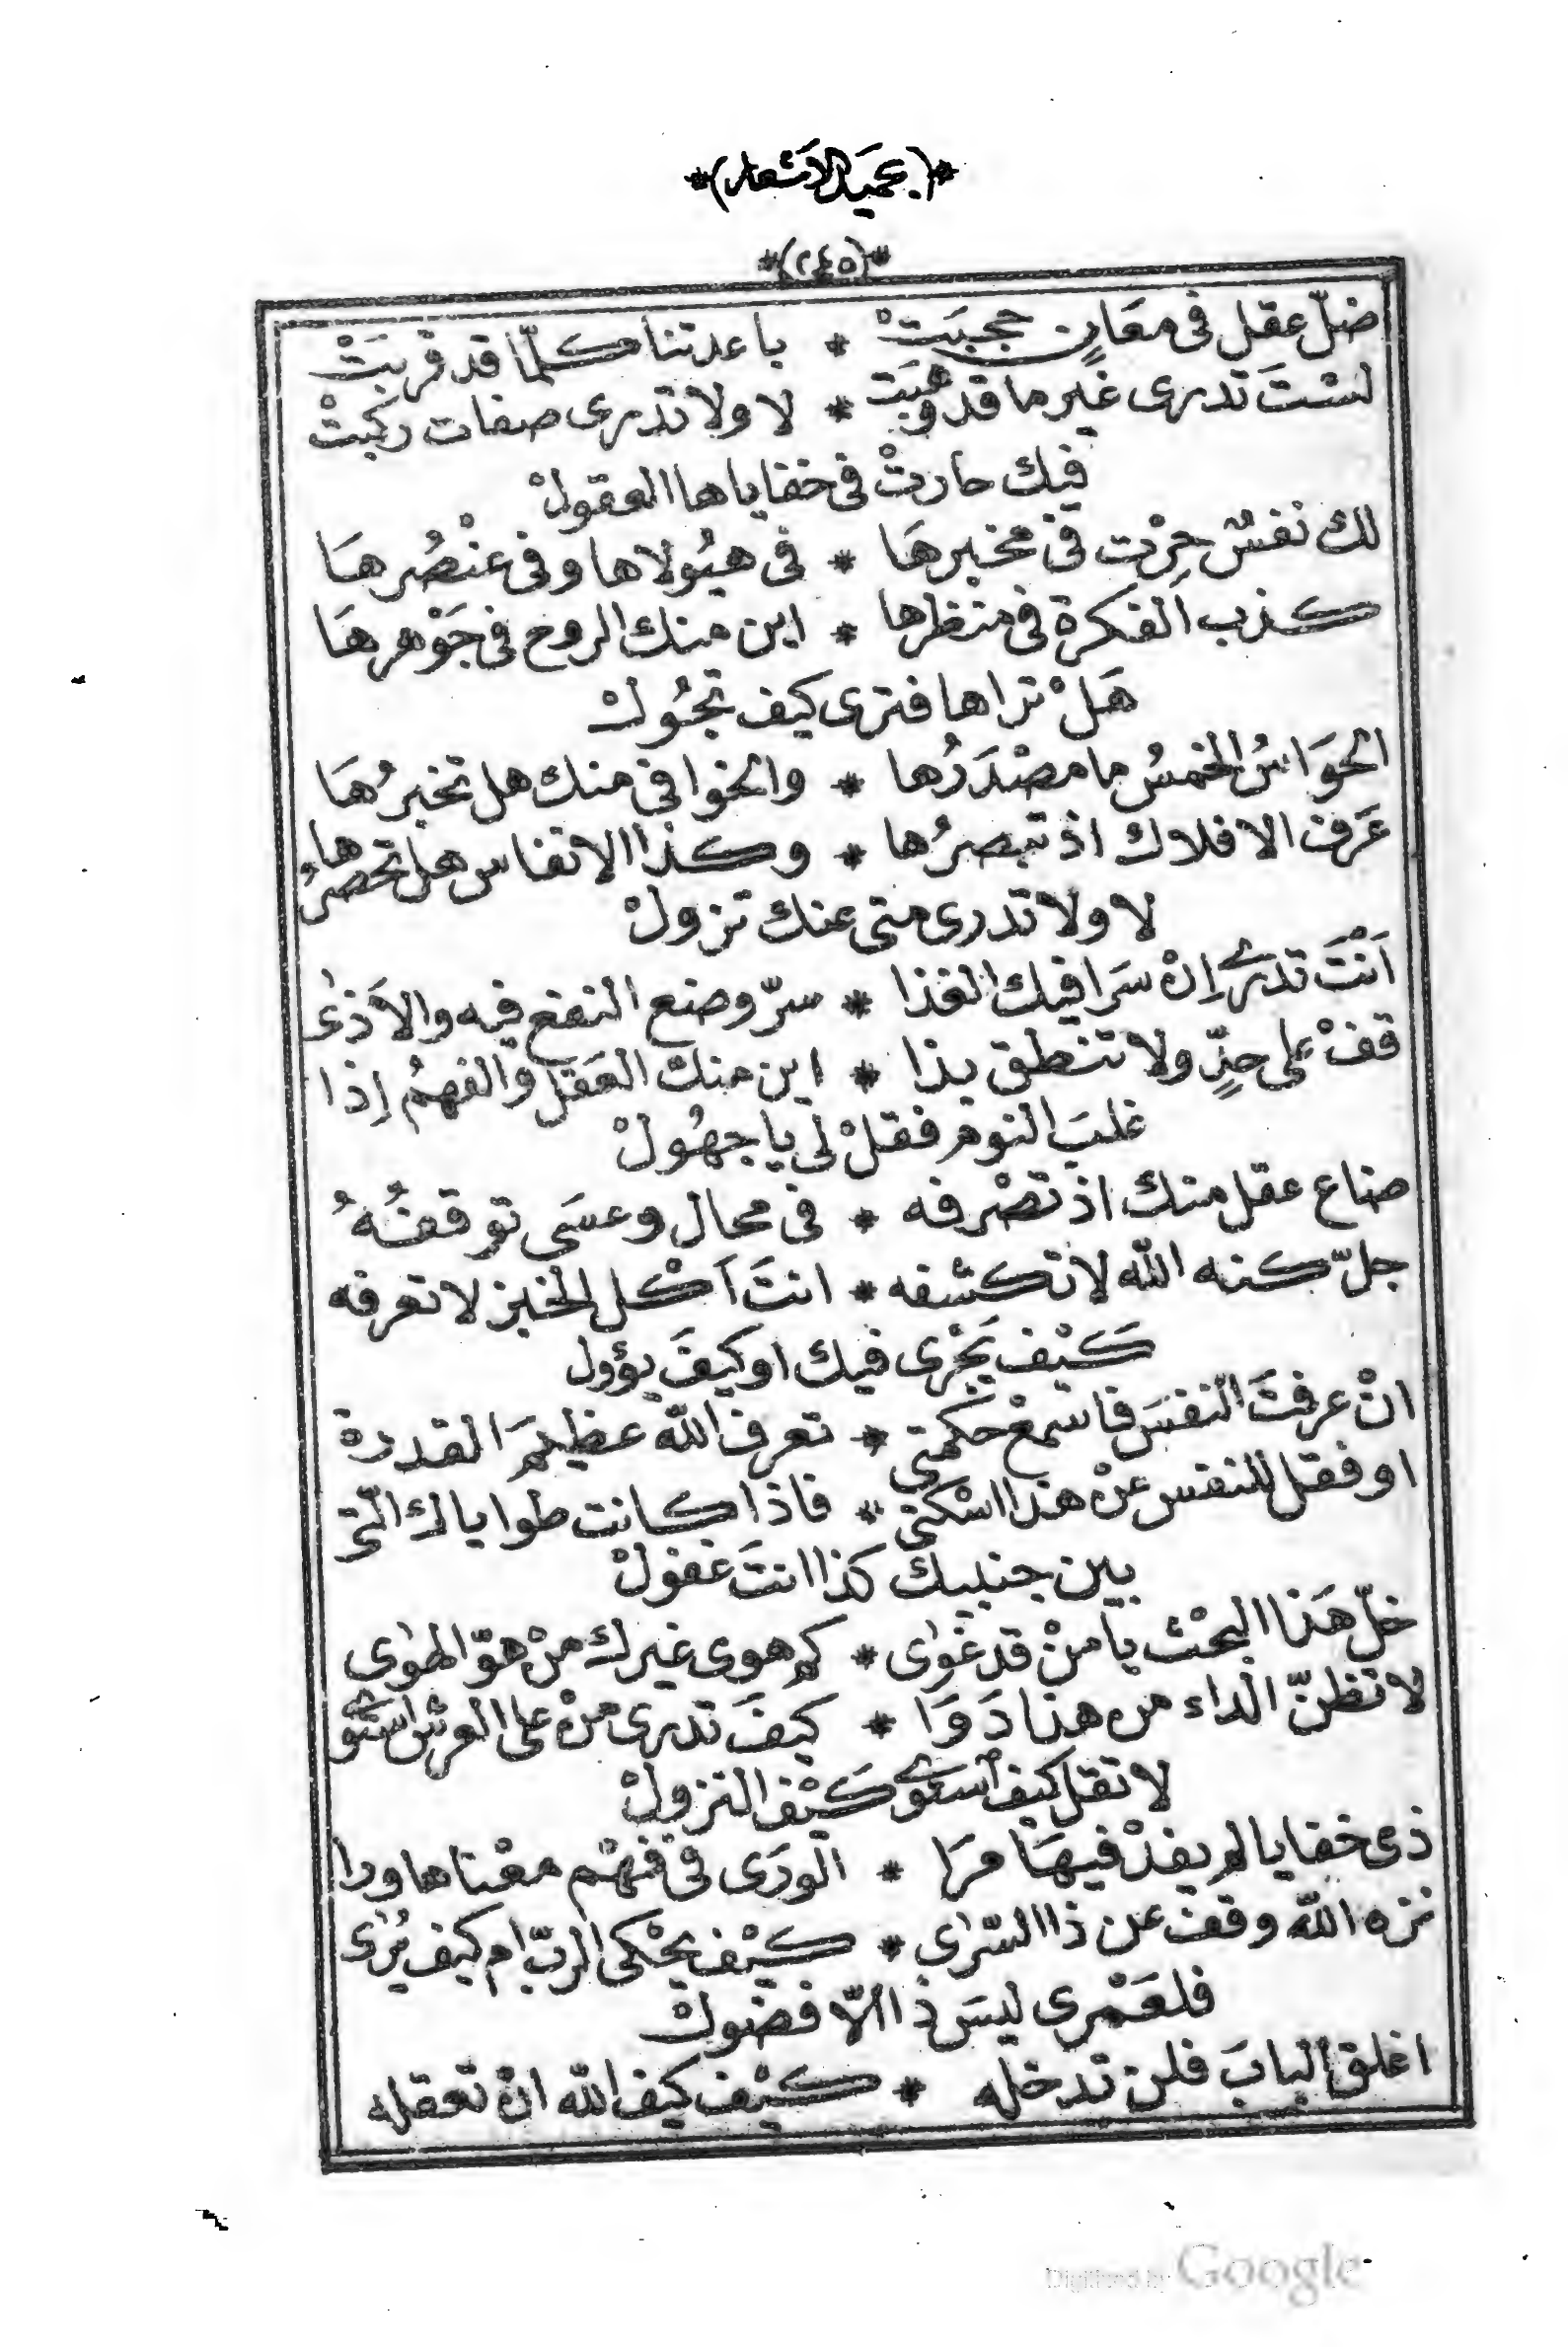 *(.عميد الاشعار)*
*(٢٤٥)*
ضلّ عقل فى معَانٍ حجبَتْ * باعدتنا كلّما قد قربَتْ
لستَ تدرى غير ما قد وهَبَت * لا ولا تدرى صفات ركبتْ
فيك حارتْ فى خفاياها العقولْ
لك نفسٌ حِرْت فى مخبرهَا * فى هيُولاها وفى عنْصُرهَا
كذب الفكرة فى منظرها * اين منك الروح فى جَوْهرهَا
هَلْ تراها فترى كيف تجُولْ
الحوَاسُ الخمسُ ما مصْدَرُها * والخوافى منك هل تخبرُهَا
عَرف الافلاك اذ تبصرُها * وكذا الانفاس هل تحصرُها
لا ولا تدرى متى عنك تزولْ
اَنْتَ تدرى إنْ سَرا فيك الغذا * سرّ وضع النفع فيه والاَذى
قفْ على حدٍّ ولا تنطق بذا * اين منك العَقل والفهمُ إذا
غلبَ النوم فقلْ لى يا جهُولْ
ضاع عقل منك اذ تصْرفه * فى محال وعسَى توقفُهُ
جلّ كنه الله لا تكشفه * انتَ اَكْل الخبز لا تعرفه
كَيْف يَجْرى فيك او كيفَ يؤول
انْ عرفتَ النفسَ فاسمعْ حكمتى * تعرف الله عظيمَ القدرة
او فقل للنفس عنْ هذا اسْكتى * فاذا كانت طواياك الّتى
بين جنبيك كذا انتَ غفولْ
خلّ هَذا البحْث يا منْ قد غوٰى * كم هوى غيرك منْ هوّ الهوٰى
لا تظنّ الداء من هذا دَوَا * كيفَ تدرى منْ على العرش استوى
لا تقل كيف استوى كَيْف النزولْ
ذى خفايا لم يفدْ فيهَا مرَا * الورَى فى فهْم معْناها ورا
نزه الله وقف عن ذا السّرٰى * كيْف يحْكى الربّ ام كيف يُرٰى
فلعَمْرى ليسَ ذا الّا فضولْ
اغلق البابَ فلن تدخله * كيْف كيف الله انْ تعقله
Digitized by Google